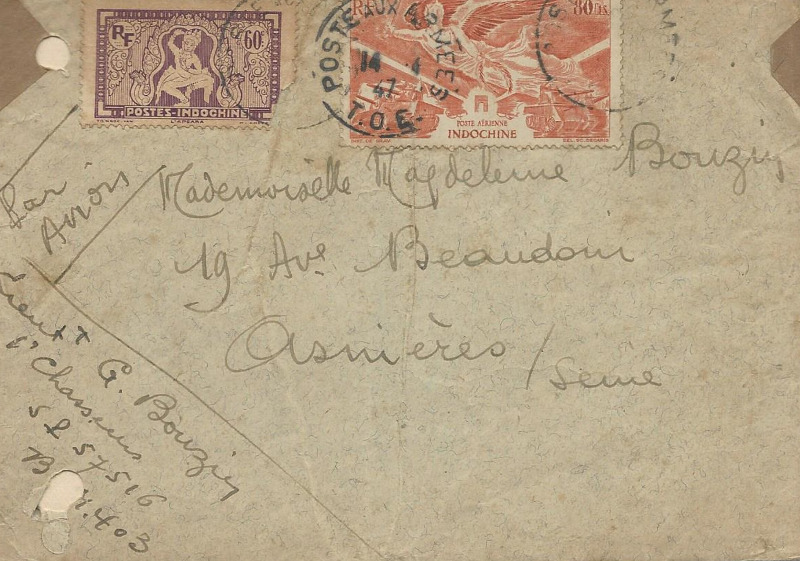 RF 60c
POSTES-INDOCHINE
L'APSARA
RF 80c
POSTE AÉRIENNE
INDOCHINE
POSTE AUX ARMEES
14 - 4
47
T.O.E.
Par
Avion
Mademoiselle Magdeleine Bouziy
19 Ave Beaudoin
Asnières /
Seine
G. Bouziy
Chasseurs
57516
403